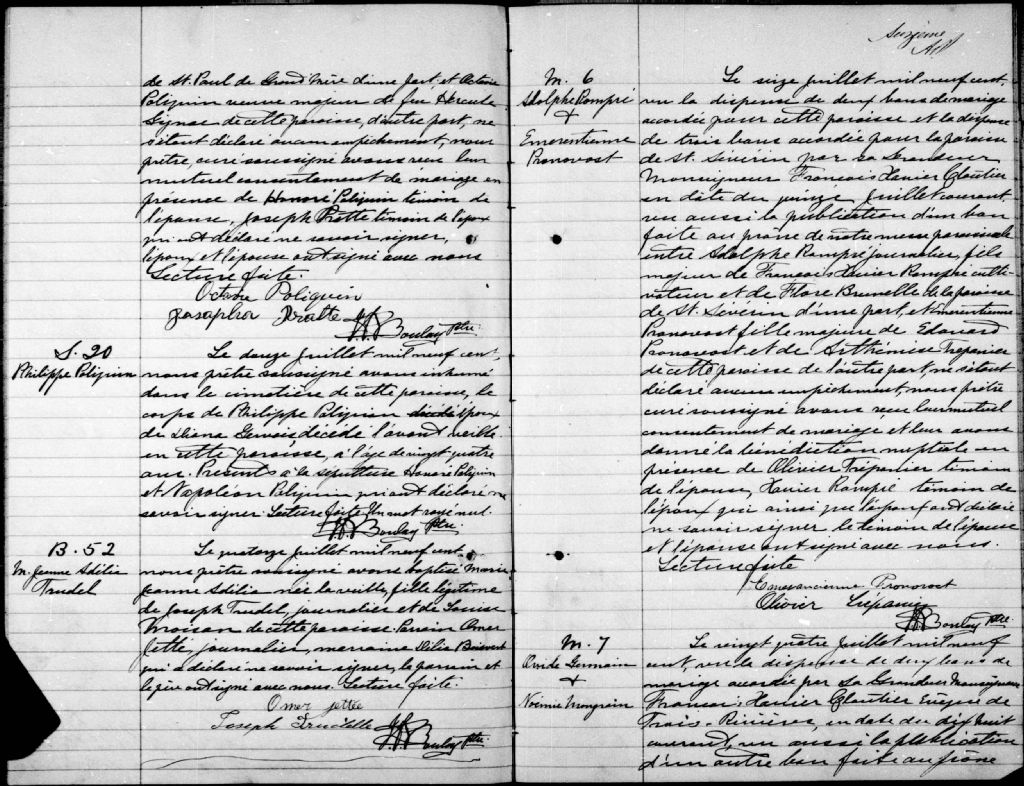 de St. Paul de Grand'Mère d'une part: et Octavie
Poliquin veuve majeur de feu Hercule
Signac de cette paroisse, d'autre part, ne
s'étant déclaré aucun empêchement, nous
prêtre, curé soussigné avons reçu leur
mutuel consentement de mariage en
présence de Honoré Poliquin témoin de
l'épouse, Joseph Pratte témoin de l'époux
qui ont déclaré ne savoir signer,
l'époux et l'épouse ont signé avec nous
Lecture faite.
Octavie Poliquin
Pratte
Boulay Ptre
S. 20
Philippe Poliquin
Le douze juillet mil neuf cent,
nous prêtre soussigné avons inhumé
dans le cimetière de cette paroisse, le
corps de Philippe Poliquin époux
de Diana Gervais décédé l'avant veille
en cette paroisse, à l'âge de vingt quatre
ans. Présents à la sépulture Honoré Poliquin
et Napoléon Poliquin qui ont déclaré ne
savoir signer. Lecture faite Un mot rayé nul.
Boulay Ptre
B. 52
M. Jeanne Adélia
Trudel
Le quatorze juillet mil neuf cent
nous prêtre soussigné avons baptisé Marie
Jeanne Adélia née la veille, fille légitime
de Joseph Trudel, journalier et de Louise
Moisan de cette paroisse. Parrain Omer
Jetté, journalier, marraine Délia
qui a déclaré ne savoir signer, le parrain et
le père ont signé avec nous. Lecture faite.
Omer jettée
Joseph Trudelle
Boulay Ptre
Suzième
M. 6
Adolphe Rompré
+
Emerentienne
Pronovost
Le seize juillet mil neuf cent,
vu la dispense de deux bans de mariage
accordée pour cette paroisse et la dispense
de trois bans accordée pour la paroisse
de St. Séverin par sa Grandeur
Monseigneur François Xavier Cloutier
en date du quinze juillet courant,
vu aussi la publication d'un ban
faite au prône de notre messe paroissiale
entre Adolphe Rompré journalier, fils
majeur de François Xavier Rompré culti-
vateur et de Flore Brunelle de la paroisse
de St. Séverin d'une part, et Emerentienne
Pronovost fille majeure de Edouard
Pronovost et de Arthémise Trépanier
de cette paroisse de l'autre part, ne s'étant
déclaré aucun empêchement, nous prêtre
curé soussigné avons reçu leur mutuel
consentement de mariage et leur avons
donné la bénédiction nuptiale en
présence de Olivier Trépanier témoin
de l'épouse, Xavier Rompré témoin de
l'époux qui ainsi que l'époux ont déclaré
ne savoir signer le témoin de l'épouse
et l'épouse ont signé avec nous.
Lecture faite
Pronovost
Olivier Trépanier
Boulay Ptre
M. 7
Ovide Germain
+
Noémie Mongrain
Le vingt quatre juillet mil neuf
cent, vu la dispense de deux bans de
mariage accordée par Sa Grandeur Monseigneur
François Xavier Cloutier Evêque de
Trois-Rivières, en date du dix huit
courant, vu aussi la publication
d'un autre ban faite au prône